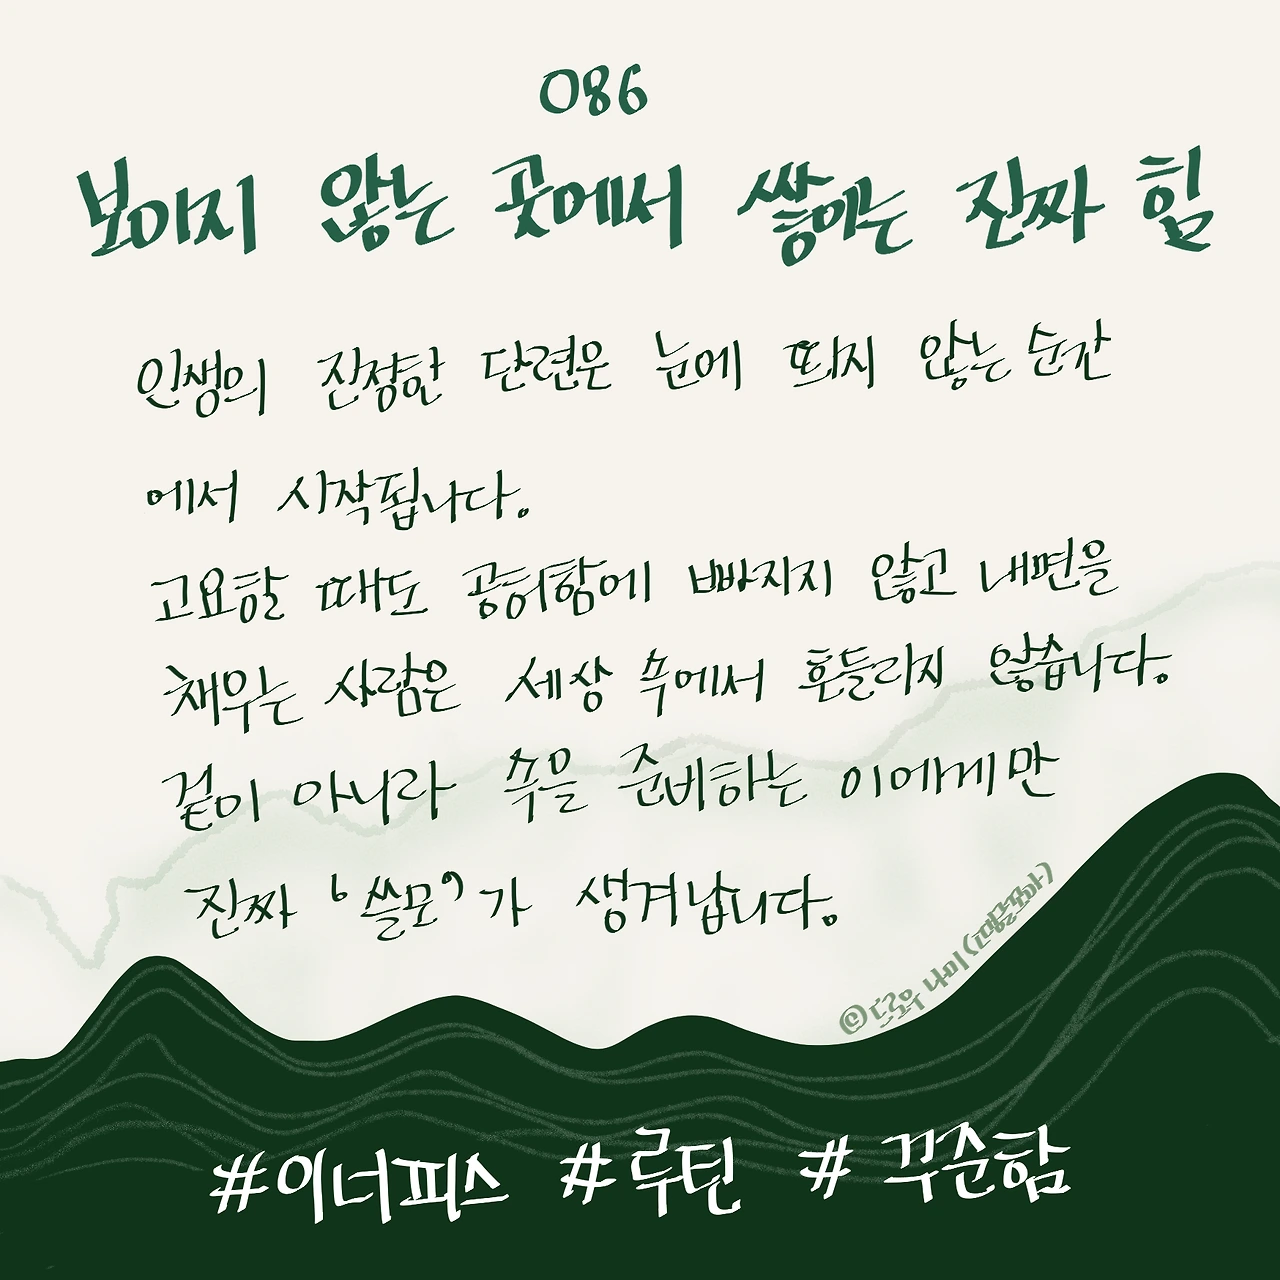 086
보이지 않는 곳에서 쌓이는 진짜 힘
인생의 진정한 단련은 눈에 띄지 않는 순간
에서 시작됩니다.
고요할 때도 공허함에 빠지지 않고 내면을
채우는 사람은 세상 속에서 흔들리지 않습니다.
겉이 아니라 속을 준비하는 이에게만
진짜 '쓸모'가 생겨납니다.
#이너피스 #루틴 #꾸준함